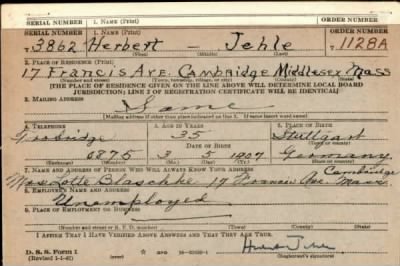 SERIAL NUMBER 1. NAME (Print) ORDER NUMBER
T3862 Herbert - Jehle 1128A
(First) (Middle) (Last)
2. PLACE OF RESIDENCE (Print)
17 Francis Ave. Cambridge Middlesex Mass
(Number and street) (Town, township, village, or city) (County) (State)
[THE PLACE OF RESIDENCE GIVEN ON THE LINE ABOVE WILL DETERMINE LOCAL BOARD
JURISDICTION; LINE 2 OF REGISTRATION CERTIFICATE WILL BE IDENTICAL]
3. MAILING ADDRESS
Same
[Mailing address if other than place indicated on line 2. If same insert word same]
4. TELEPHONE 5. AGE IN YEARS 6. PLACE OF BIRTH
Trobridge 35 Stuttgart
DATE OF BIRTH (Town or county)
6875 3 5 1907 Germany
(Exchange) (Number) (Mo.) (Day) (Yr.) (State or country)
7. NAME AND ADDRESS OF PERSON WHO WILL ALWAYS KNOW YOUR ADDRESS Cambridge
Mrs. Lotte Blaschke 17 Francis Ave. Mass.
8. EMPLOYER'S NAME AND ADDRESS
Unemployed
9. PLACE OF EMPLOYMENT OR BUSINESS
(Number and street or R. F. D. number) (Town) (County) (State)
I AFFIRM THAT I HAVE VERIFIED ABOVE ANSWERS AND THAT THEY ARE TRUE.
D. S. S. Form 1
(Revised 1-1-42) (over) Herbert Jehle
(Registrant's signature)